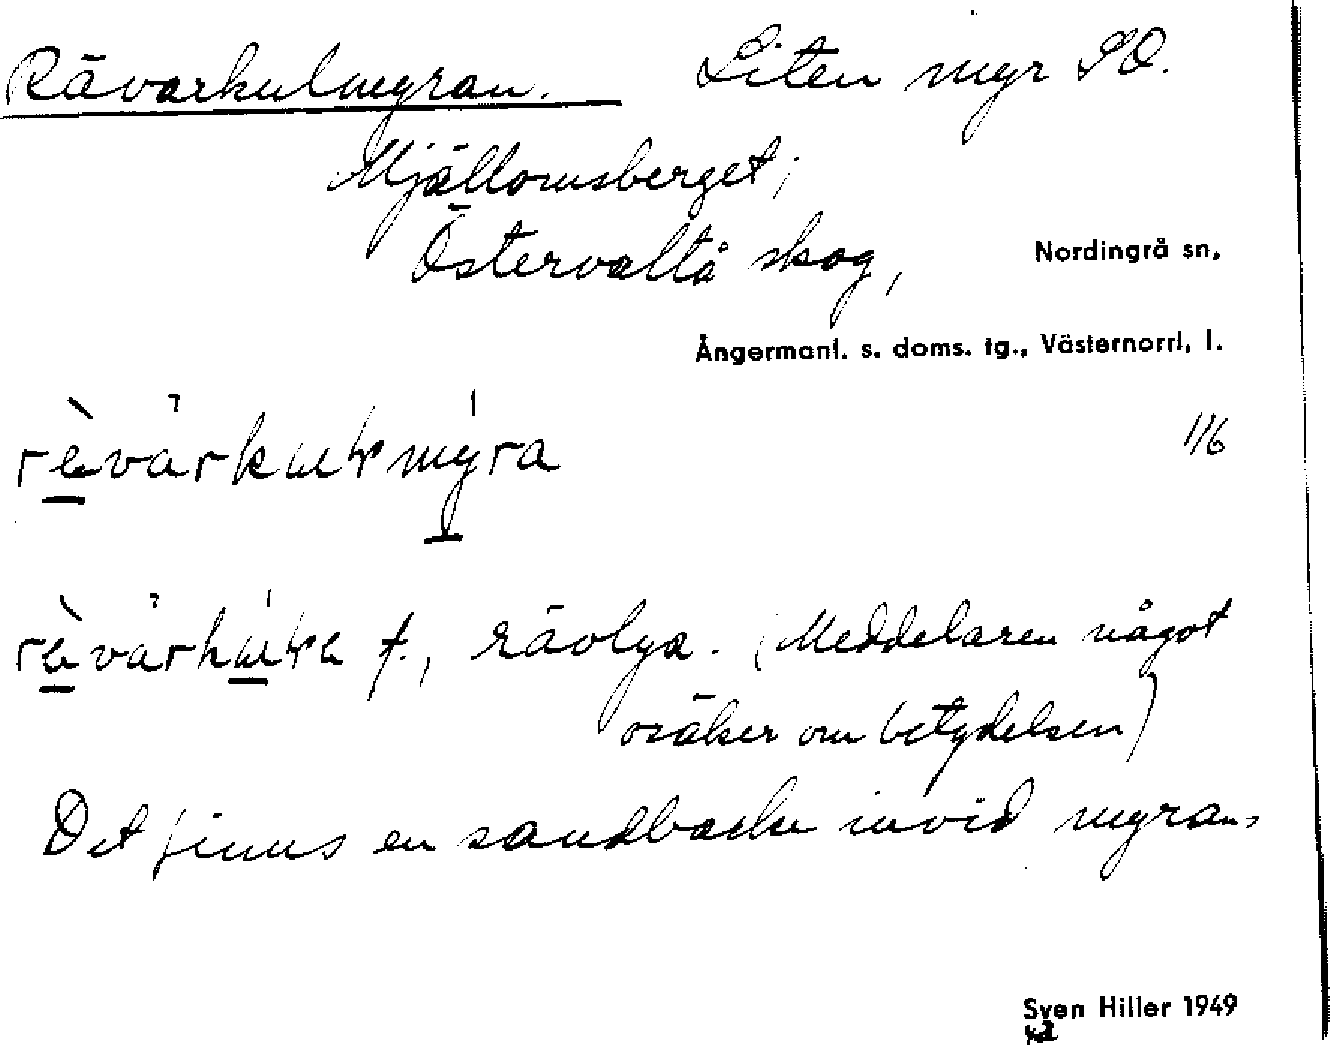 Rävarkulmyran. Liten myr SO.
Mjällomsberget;
Östervaltå skog,
Nordingrå sn,
Ångermanl. s. doms. tg., Västernorrl. l.
116
f., rävlya. (Meddelaren något
osäker om betydelsen)
Det finns en sandbacke invid myran.
Sven Hiller 1949